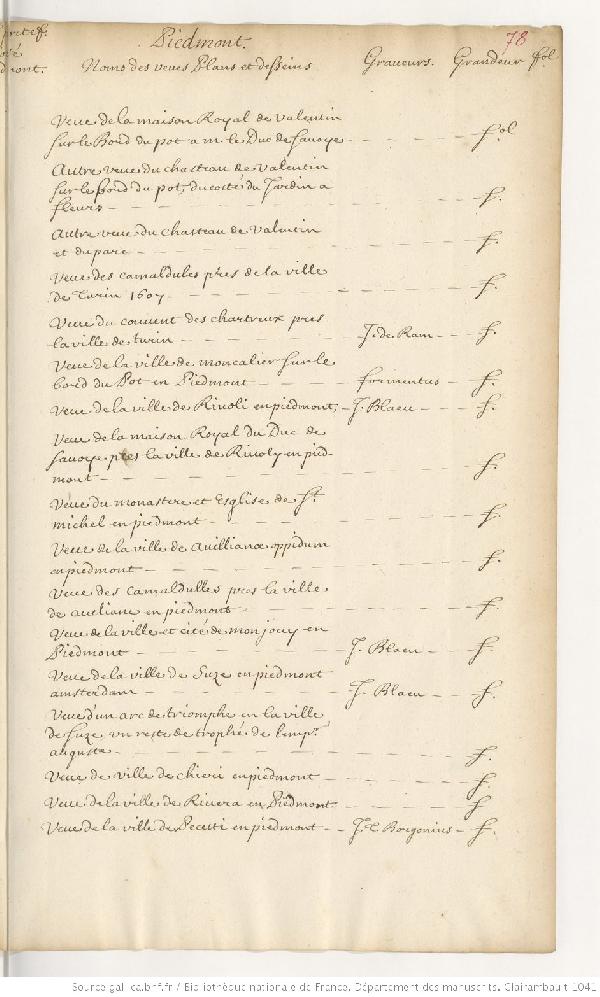 Piedmont. 78
Noms des veues Plans et desseins Graveurs. Grandeur fol
Veue de la maison Royal de Valentin
sur le Bord du pot a m. le Duc de Savoye - - - fol
Autre veue du chasteau de Valentin
sur le bord du pot, du costé du Jardin a
fleurs - - - f.
Autre veue du chasteau de Valentin
et du parc - - - f.
Veue des camaldules pres de la ville
de Turin 1607 - - - f.
Veue du couvent des chartreux pres
la ville de turin - - - J. de Ram - - f.
Veue de la ville de moncalier sur le
bord du Pot en Piedmont - - - formentus - - f.
Veue de la ville de Rivoli en piedmont, - J. Blaeu - - f.
Veue de la maison Royal du Duc de
Savoye pres la ville de Rivoly en pied-
mont - - - f.
Veue du monastere et Esglise de St
michel en piedmont - - - f.
Veue de la ville de Avilliana oppidum
en piedmont - - - f.
Veue des Camaldulles pres la ville
de aveliane en piedmont - - - f.
Veue de la ville et cité de monjouy en
Piedmont - - - J. Blaeu - - f.
Veue de la ville de Suze en piedmont
amsterdam - - - J. Blaeu - - f.
Veue d'un arc de triomphe en la ville
de Suze, un reste de trophé de l'empr
auguste - - - f.
Veue de ville de chieri en piedmont - - - f.
Veue de la ville de Rivera en Piedmont - - - f
Veue de la ville de Pecetti en piedmont - - J. T. Borgonius - f.
Source gallica.bnf.fr / Bibliothèque nationale de France. Département des manuscrits. Clairambault 1041